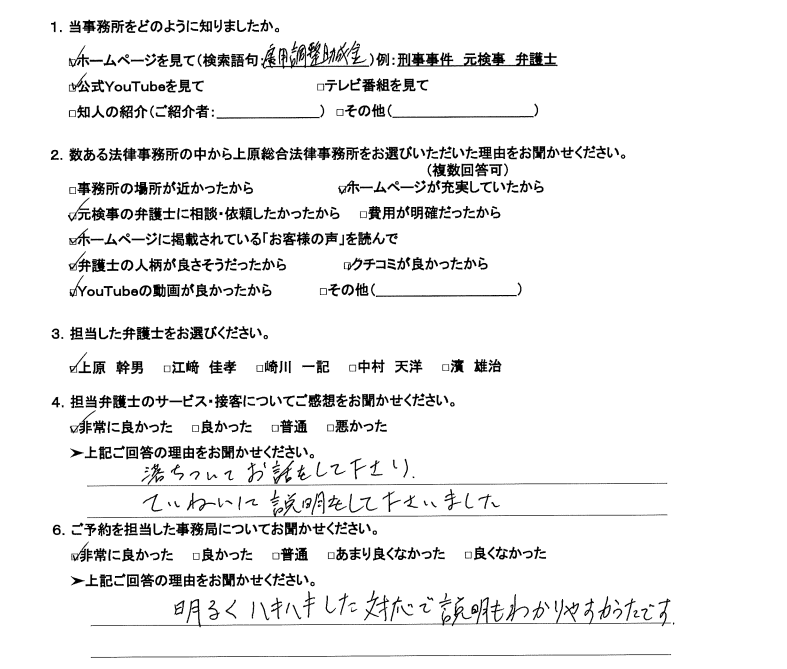 1. 当事務所をどのように知りましたか。
☑ホームページを見て(検索語句:雇用調整助成金)例:刑事事件 元検事 弁護士
☑公式YouTubeを見て □テレビ番組を見て
□知人の紹介(ご紹介者:____________) □その他(________________)
2. 数ある法律事務所の中から上原総合法律事務所をお選びいただいた理由をお聞かせください。
(複数回答可)
□事務所の場所が近かったから ☑ホームページが充実していたから
☑元検事の弁護士に相談・依頼したかったから □費用が明確だったから
☑ホームページに掲載されている「お客様の声」を読んで
☑弁護士の人柄が良さそうだったから ☑クチコミが良かったから
☑YouTubeの動画が良かったから □その他(________________)
3. 担当した弁護士をお選びください。
☑上原 幹男 □江﨑 佳孝 □崎川 一記 □中村 天洋 □濱 雄治
4. 担当弁護士のサービス・接客についてご感想をお聞かせください。
☑非常に良かった □良かった □普通 □悪かった
➤上記ご回答の理由をお聞かせください。
落ちついてお話をして下さり、
ていねいに説明をして下さいました
6. ご予約を担当した事務局についてお聞かせください。
☑非常に良かった □良かった □普通 □あまり良くなかった □良くなかった
➤上記ご回答の理由をお聞かせください。
明るくハキハキした対応で説明もわかりやすかったです。